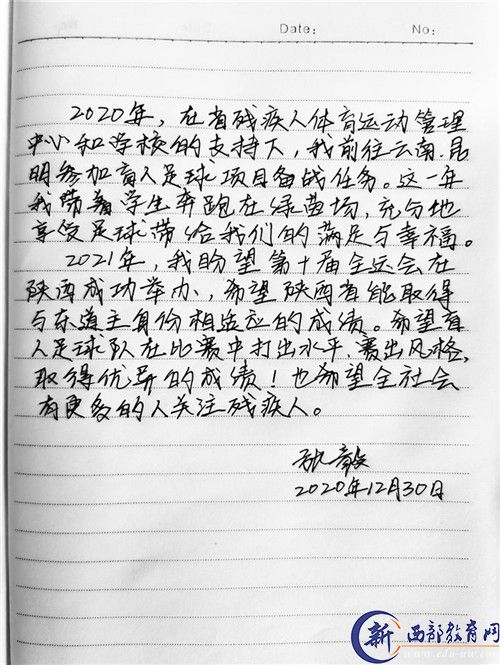 Date:
No:
2020年，在省残疾人体育运动管理
中心和学校的支持下，我前往云南.昆
明参加盲人足球项目备战任务。这一年
我带着学生奔跑在绿茵场，充分地
享受足球带给我们的满足与幸福。
2021年，我盼望第十届全运会在
陕西成功举办、希望陕西省能取得
与东道主身份相适应的成绩。希望盲
人足球队在比赛中打出水平、赛出风格，
取得优异的成绩！也希望全社会
有更多的人关注残疾人。
张敏
2020年12月30日
新 西部教育网
www.edu-nw.com